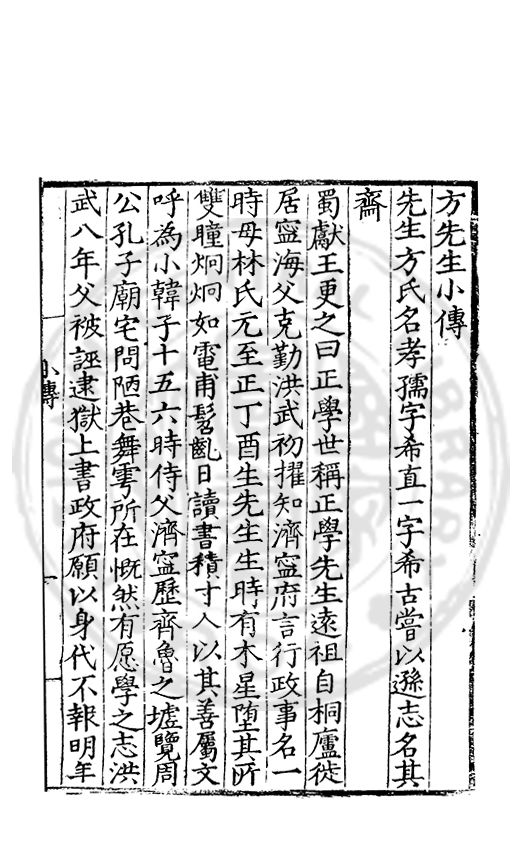 方先生小傳
先生方氏名孝孺字希直一字希古嘗以遜志名其
齋
蜀獻王更之曰正學世稱正學先生遠祖自桐廬徙
居寧海父克勤洪武初擢知濟寧府言行政事名一
時母林氏元至正丁酉生先生生時有木星墮其所
雙瞳炯炯如電甫髫齔日讀書積寸人以其善屬文
呼為小韓子十五六時侍父濟寧歷齊魯之墟覽周
公孔子廟宅問陋巷舞雩所在慨然有愿學之志洪
武八年父被誣逮獄上書政府願以身代不報明年
小傳